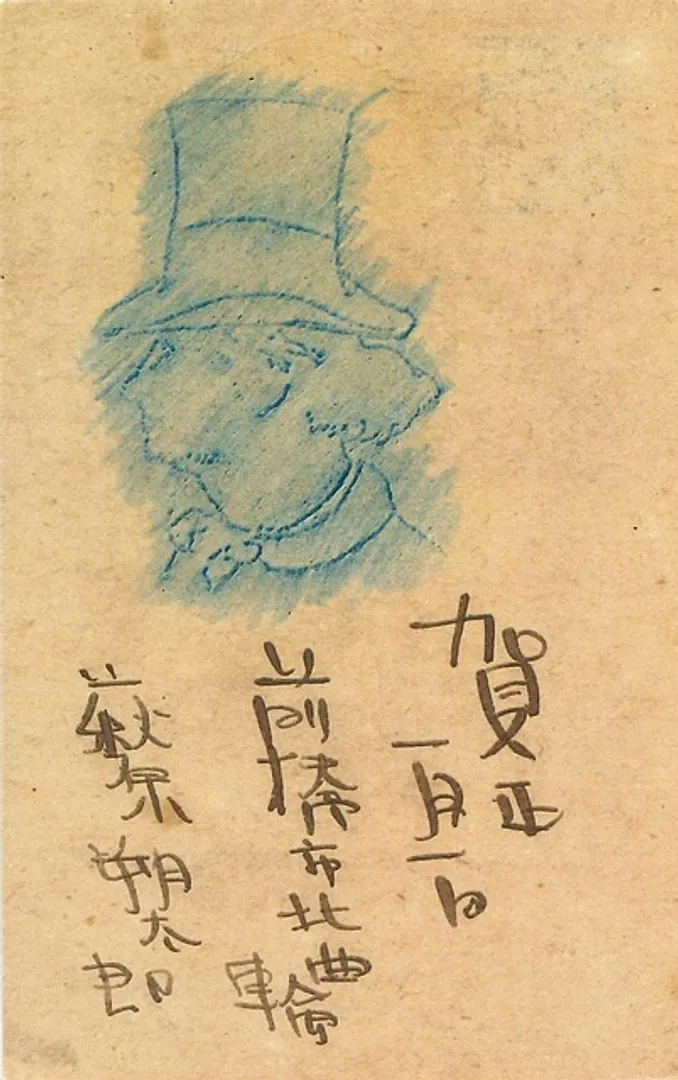 賀正
一月一日
前橋市北曲輪
萩原朔太郎